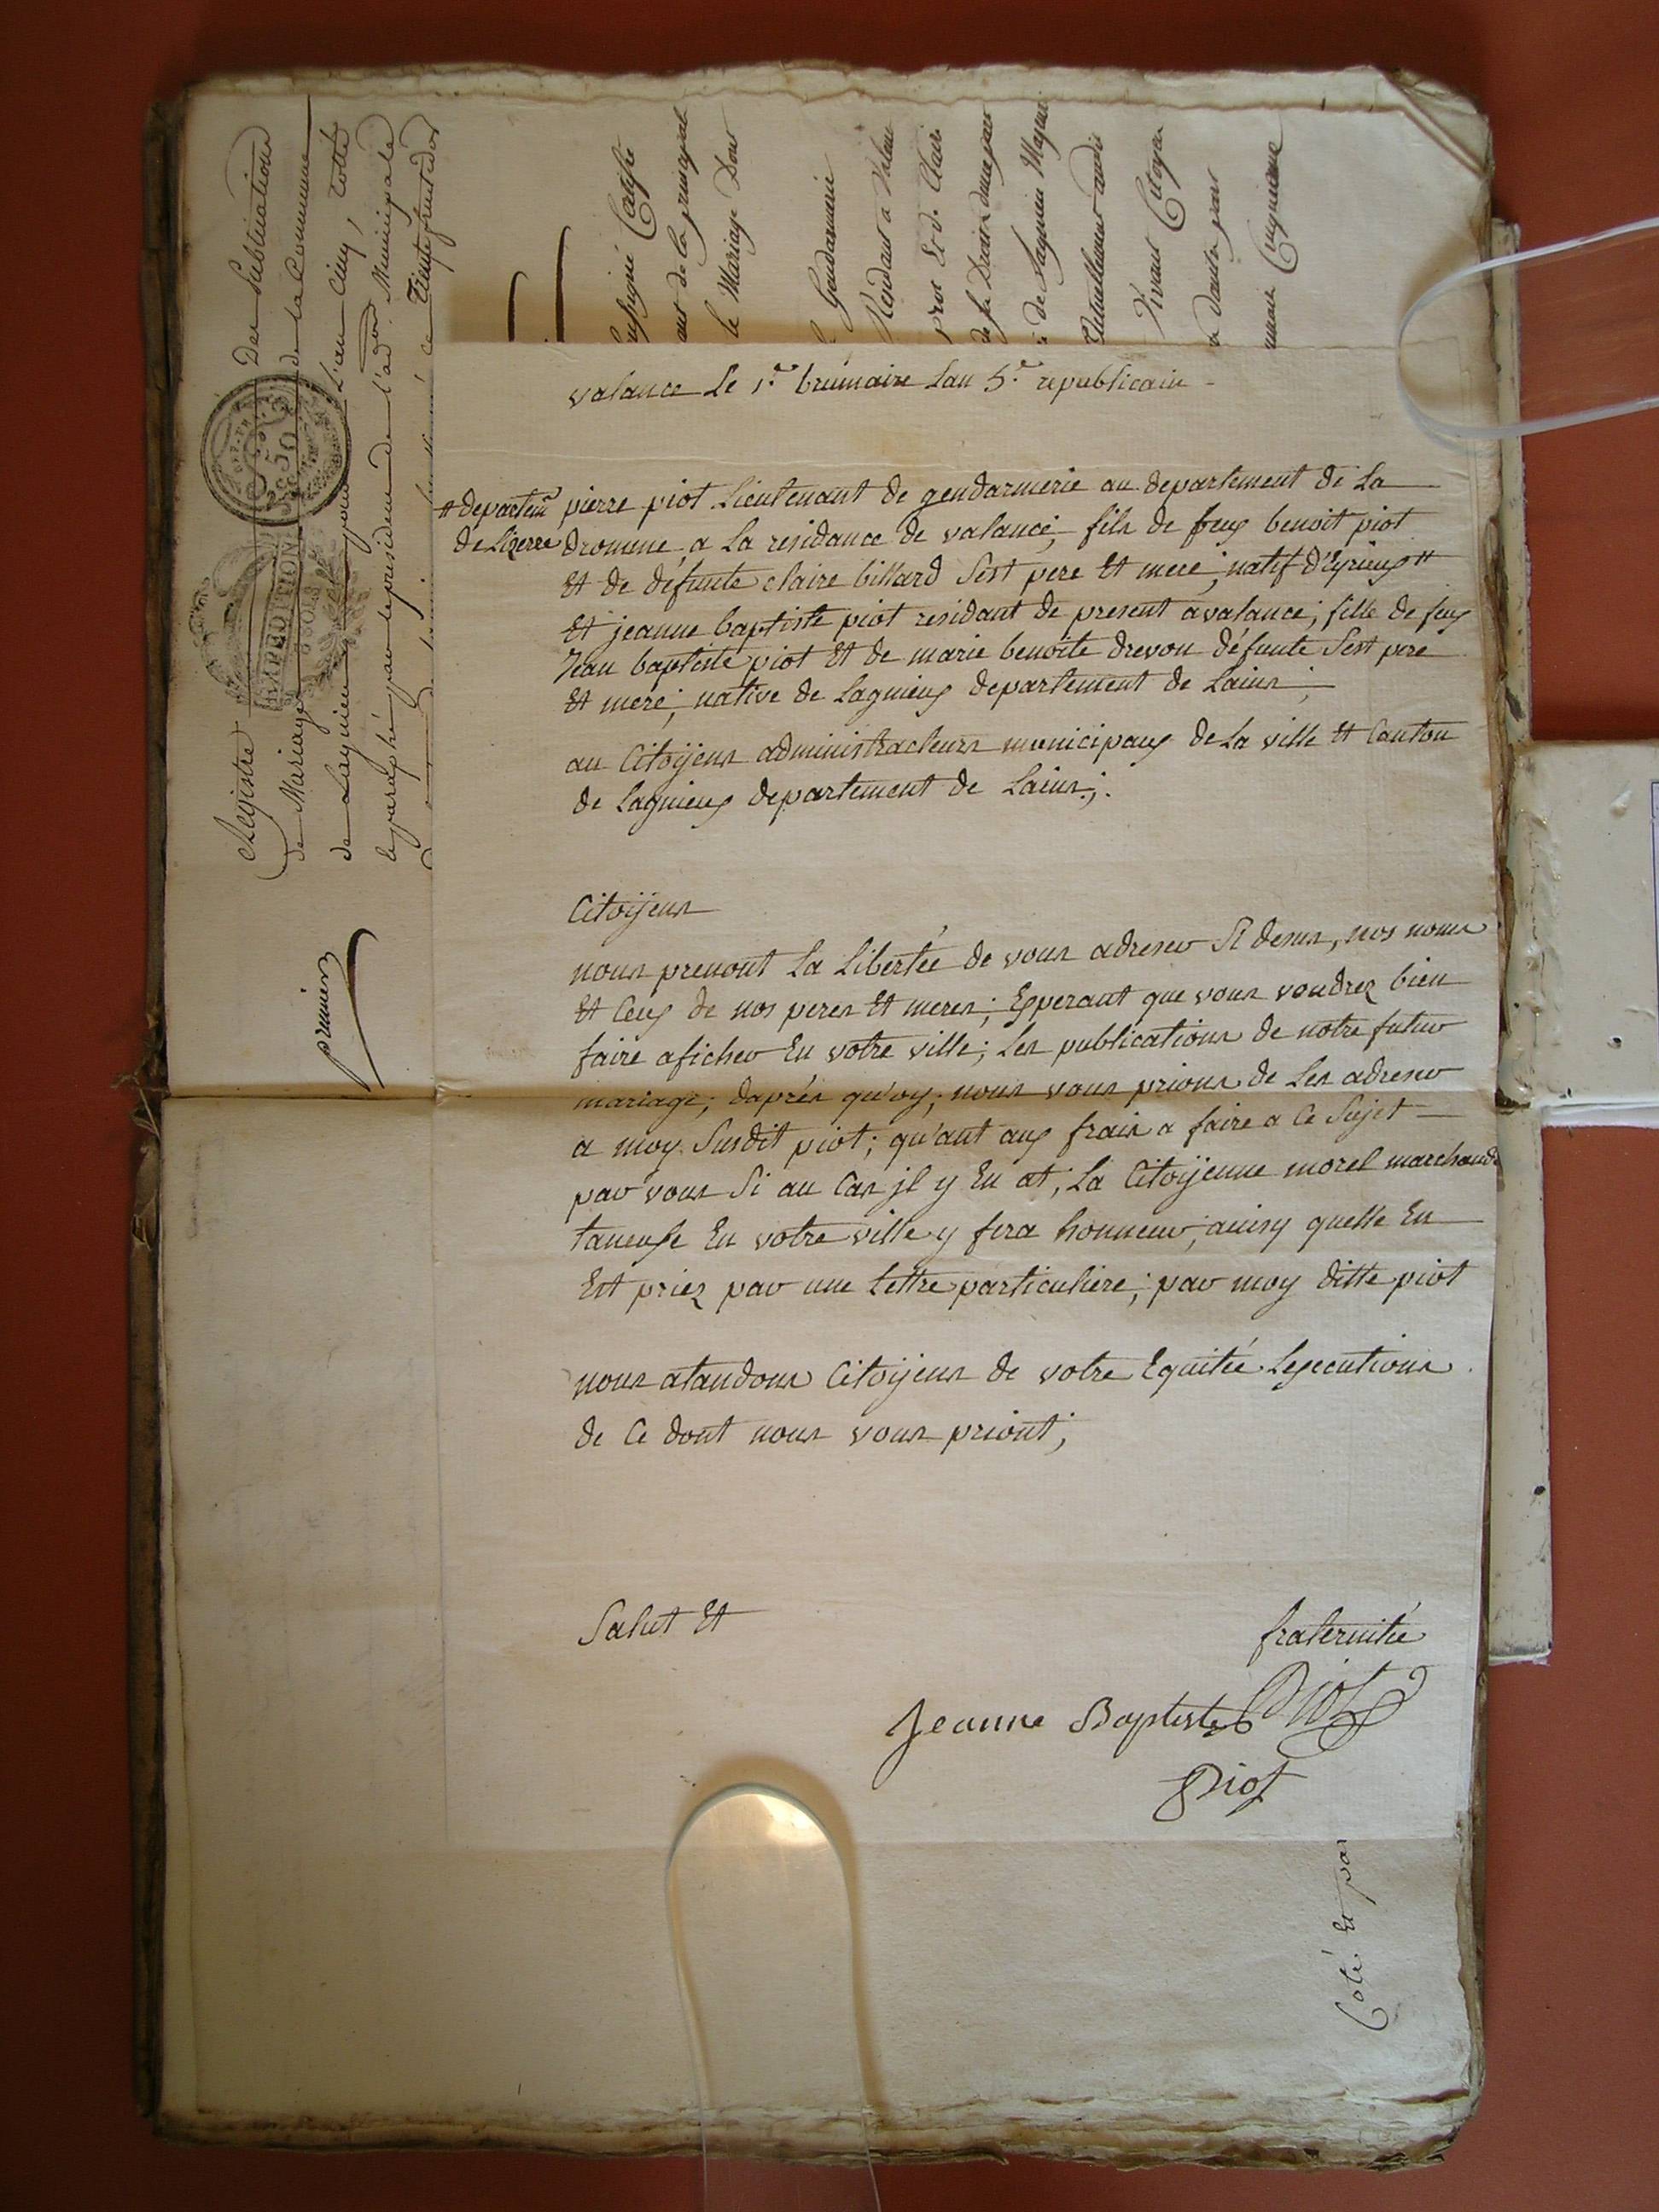 Registre Des Publications
de Mariage de la Commune
de Lagnieu pour L'an Cinq, Cotté
et paraphé par le président de l'adon Municipale
premier
ussigné Certifie
le Mariage
Gendarmerie
Rendant a Valen
de Lagnieu
Actuellement
vivant Citoyen
valance Le 1.er brumaire Lan 5.e republicain
pierre piot Lieutenant de gendarmerie au departement de La
# departem.t de Lizerre
dromene a La residance de valance; fils de feux benoit piot
Et de défunte claire billard Sest pere Et mere; natif d'Eyrieux #
Et jeanne baptiste piot residant de present a valance; fille de feux
Jean baptiste piot Et de marie benoite drevon défunte Sest pere
Et mere; native de Lagnieux departement de Lains;
au Citoÿens administracteurs municipaux de La ville Et Canton
de Lagnieux departement de Lains;.
Citoÿens
nous prenont La Libertée de vous adresser Si desus, nos noms
Et Ceux de nos peres Et meres; Esperant que vous voudrez bien
faire aficher En votre ville; Les publications de notre futur
mariage; daprés qu'oy; nous vous prions de Les adresser
a moy Susdit piot; qu'ant aux frais a faire a Ce Sujet
par vous Si au Cas jl y En at, La Citoÿenne morel marchande
taneuse En votre ville y fera honneur; ainsy quelle En
Est priez par une Lettre particuliere; par moy ditte piot
nous atandons Citoÿens de votre Equitée Lexecutions
de Ce dont nous vous priont;
Salut Et fraternitée
Jeanne Baptiste Piot
Piot
Coté et par